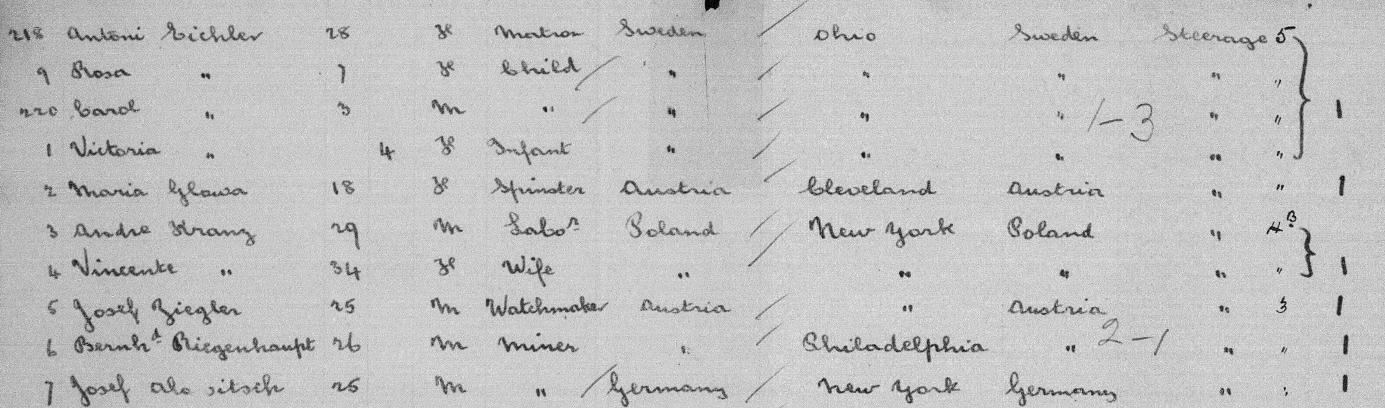 218 Antoni Eichler 28 F Matron Sweden Ohio Sweden Steerage 5
9 Rosa " 7 F Child " " " " "
220 Carol " 3 M " " " " " " 1
1 Victoria " 4 F Infant " " " " "
2 Maria Glowa 18 F Spinster Austria Cleveland Austria " " 1
1-3
3 Andre Kranz 29 M Labo^r Poland New York Poland " 4^B
4 Vincente " 34 F Wife " " " " " 1
5 Josef Ziegler 25 M Watchmaker Austria " Austria " 3 1
6 Bernh^d Riegenhaupt 26 M Miner " Philadelphia " " " 1
2-1
7 Josef 25 M " Germany New York Germany " " 1